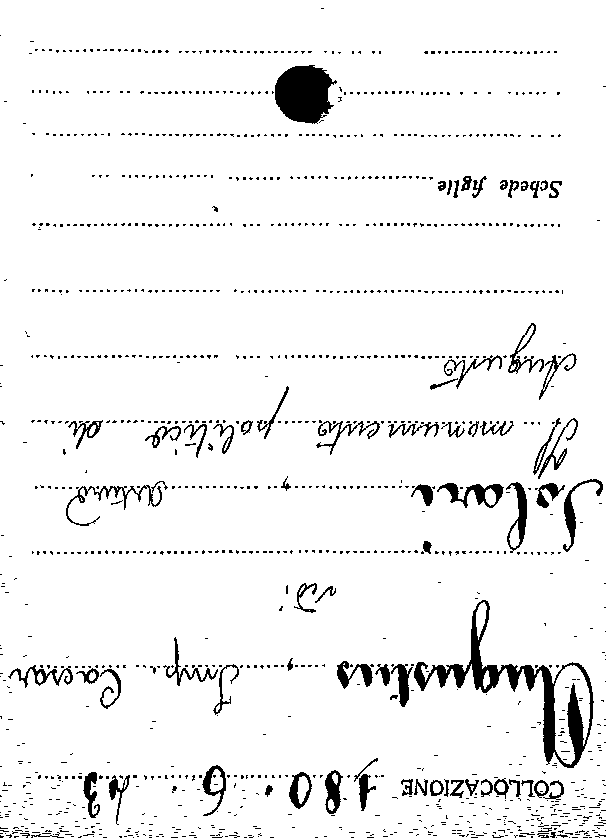 COLLOCAZIONE 180. 6. 43
Augustus, Imp. Caesar
vedi
Solari, Arturo
Il monumento politico di
Augusto
Schede figlie